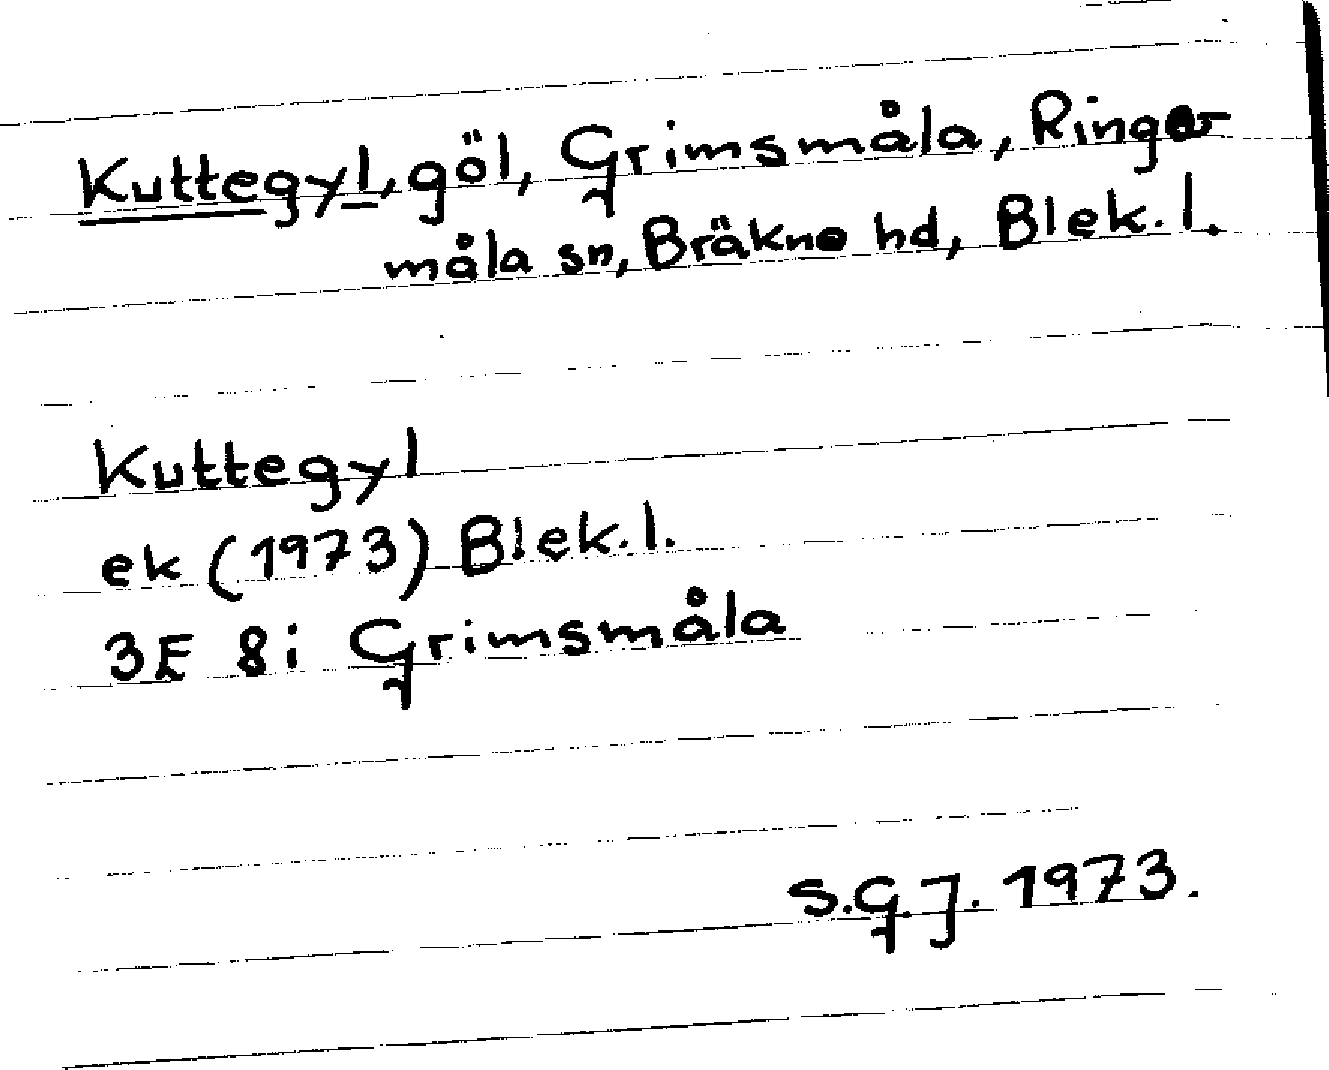 Kuttegyl, göl, Grimsmåla, Ringa-
måla sn, Bräkne hd, Blek. l.
Kuttegyl
ek (1973) Blek. l.
3E 8i Grimsmåla
S.G.J. 1973.